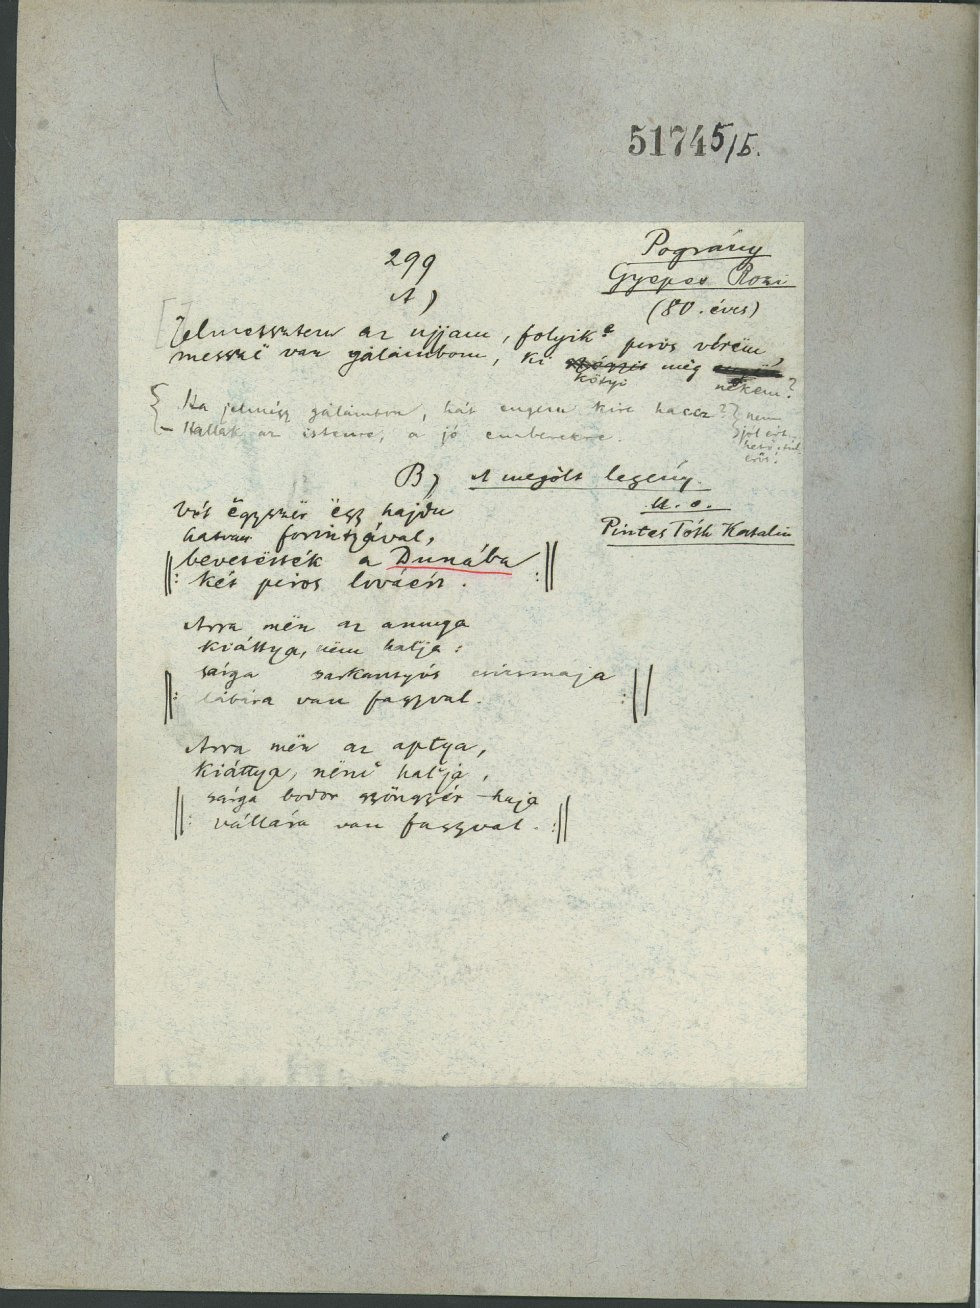 51745/5.
299
Pográny
Gyepes Rozi
(80. éves)
A)
Jelmessztem az ujjam, folyik e piros vérëm,
messzi van gálámbom, ki még
kötyi nekem?
Ha jelmégy gálámbom, hát engem kire haccz?
nem
jól ért-
hető
Hallák az istenre, a jó emberekre.
B) A megölt legény.
u. o.
Pintes Tóth Katalin
Vót ëgyszër ëgy hajdu
hatvan forintyával,
bevetëtték a Dunába
két piros lováér.
Arra mën az annya
kiáttya, nëm hallja:
sárga sarkantyús csizmája
lábára van faggyal.
Arra mën az aptya,
kiáttya, nëm hallja,
sárga bodor göngyér haja
vállára van faggyal.